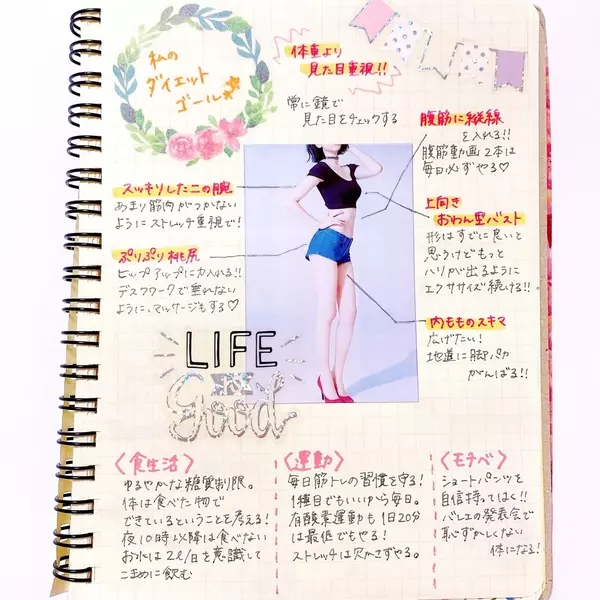 私の
ダイエット
ゴール
体重より
見た目重視!!
常に鏡で
見た目をチェックする
腹筋に縦線
を入れる!!
腹筋動画2本は
毎日必ずやる♡
スッキリした二の腕
あまり筋肉がつかない
ようにストレッチ重視で!
上向き
おわん型バスト
形はすでに良いと
思うけどもっと
ハリが出るように
エクササイズ続ける!!
ぷりぷり桃尻
ヒップアップに力入れる!!
デスクワークで垂れない
ように、マッサージもする♡
内もものスキマ
広げたい!
地道に脚パカ
がんばる!!
LIFE
is
Good
〈食生活〉
ゆるやかな糖質制限。
体は食べた物で
できているということを考える!
夜10時以降は食べない
お水は2ℓ/日を意識して
こまめに飲む
〈運動〉
毎日筋トレの習慣を守る!
1種目でもいいから毎日。
有酸素運動も1日20分
は最低でもやる!
ストレッチは欠かさずやる。
〈モチベ〉
ショートパンツを
自信持ってはく!!
バレエの発表会で
恥ずかしくない
体になる!